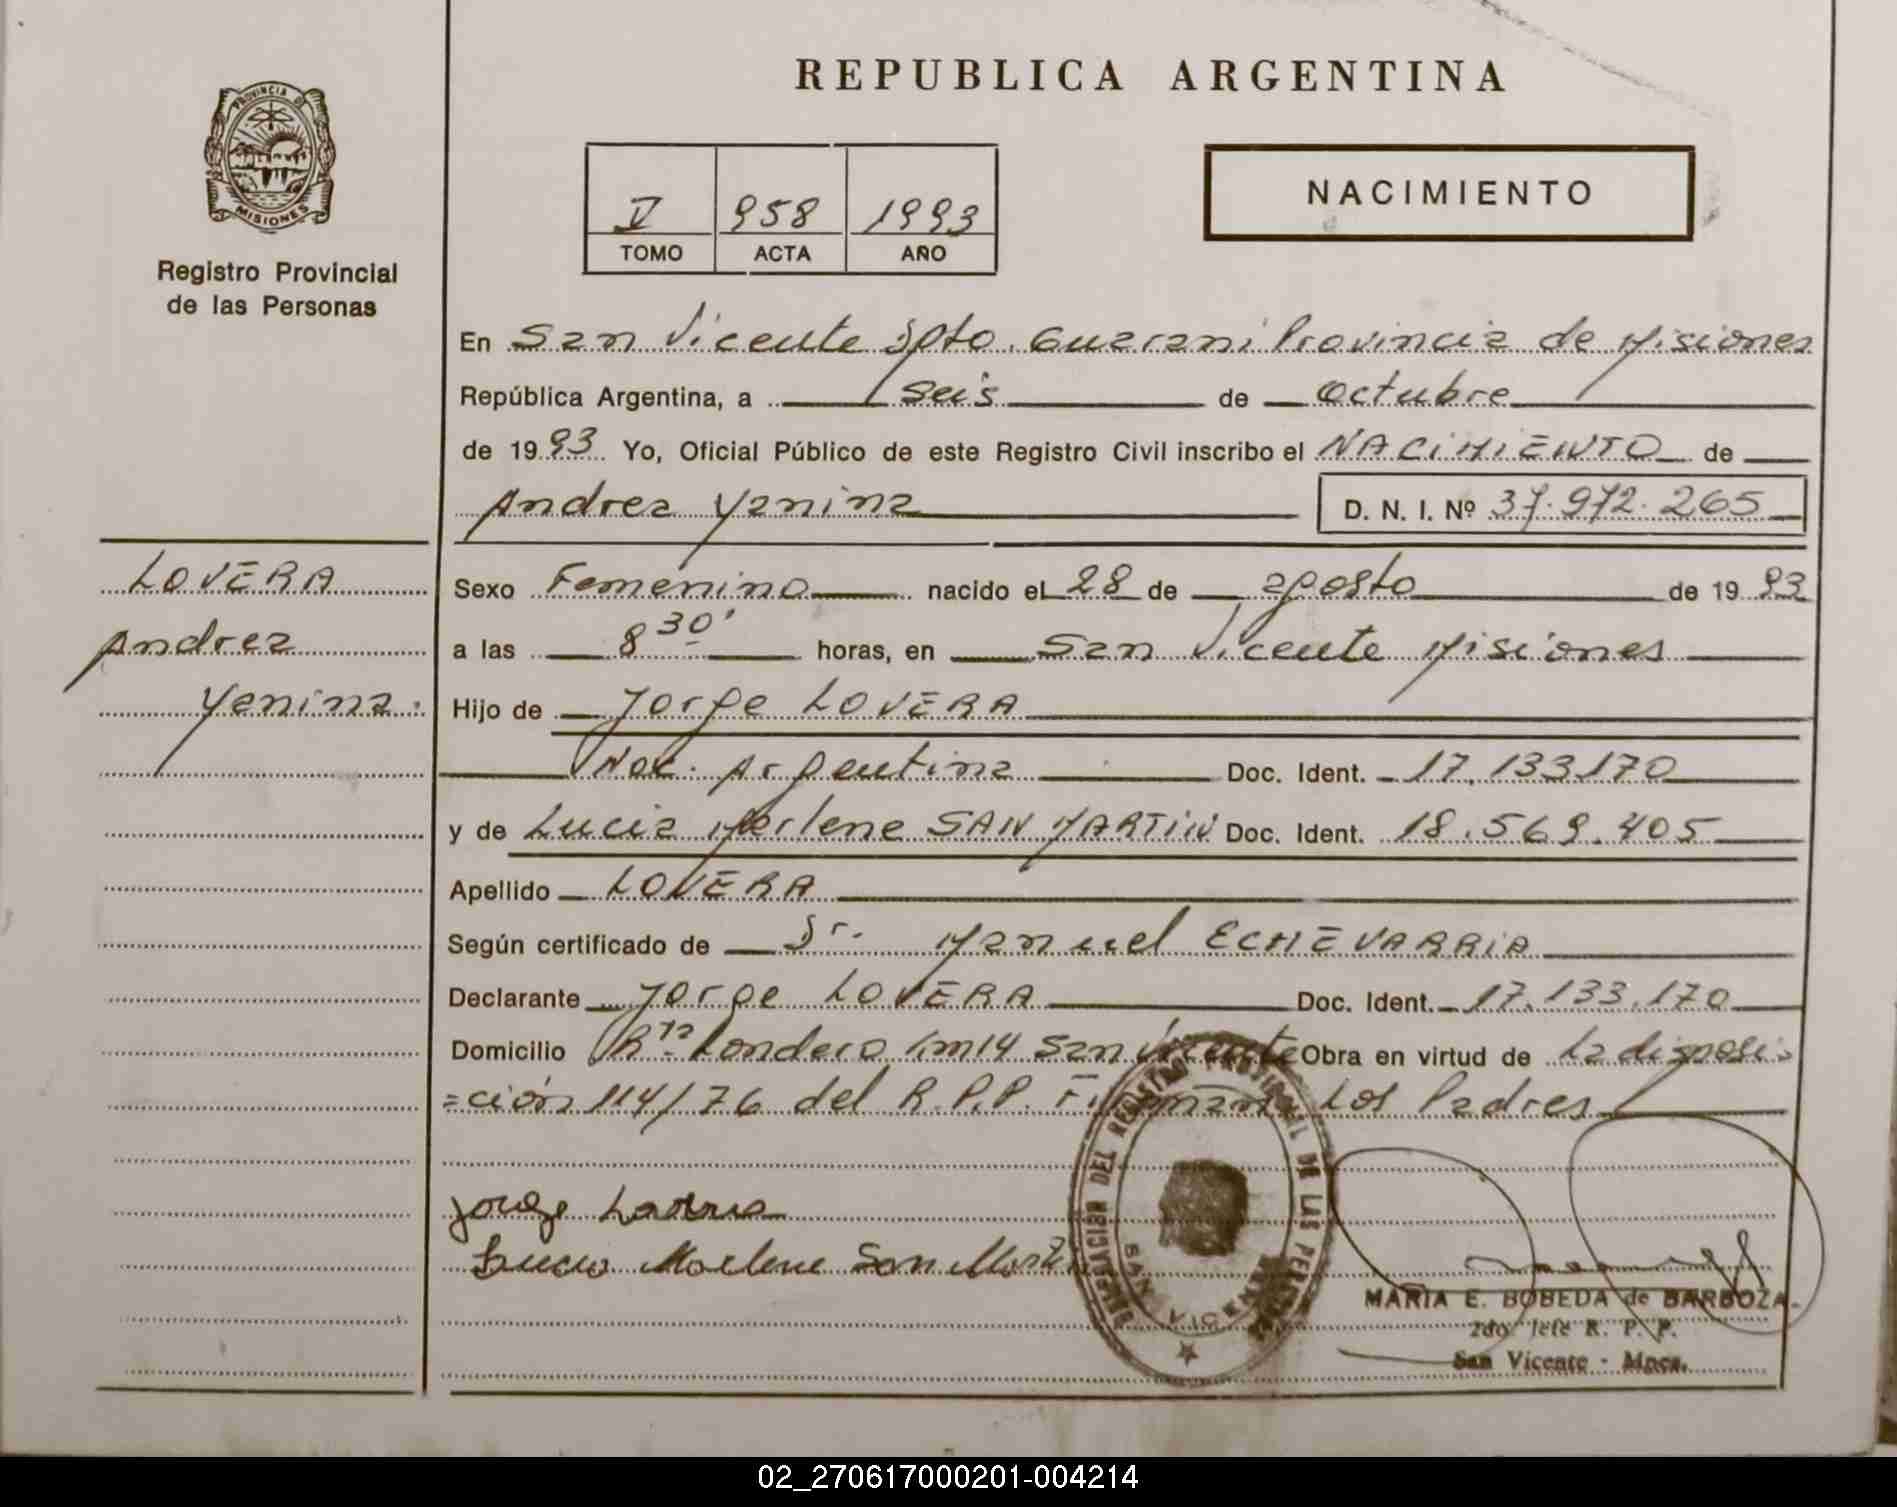 REPUBLICA ARGENTINA
PROVINCIA DE
MISIONES
Registro Provincial
de las Personas
V 958 1993
TOMO ACTA AÑO
NACIMIENTO
En San Vicente Dpto. Guarani Provincia de Misiones
República Argentina, a seis de octubre
de 1993 Yo, Oficial Público de este Registro Civil inscribo el NACIMIENTO de
Andrea Yanina D. N. I. Nº 37.972.265
LOVERA
Andrea
Yanina.
Sexo Femenino nacido el 28 de agosto de 1993
a las 8 30' horas, en San Vicente Misiones
Hijo de Jorge LOVERA
Nac. Argentina Doc. Ident. 17.133.170
y de Lucia Marlene SAN MARTIN Doc. Ident. 18.569.405
Apellido LOVERA
Según certificado de Dr. Manuel ECHEVARRIA
Declarante Jorge LOVERA Doc. Ident. 17.133.170
Domicilio Londero km 14 San Vicente Obra en virtud de la disposi-
=ción 114/76 del R.P.P. Firman Los Padres
Jorge
Lucia Marlene San Martin
DELEGACION DEL REGISTRO PROVINCIAL DE LAS PERSONAS
SAN VICENTE
MARIA E. BOBEDA de BARBOZA
2do Jefe R. P. P.
San Vicente - Mnes.
02_270617000201-004214